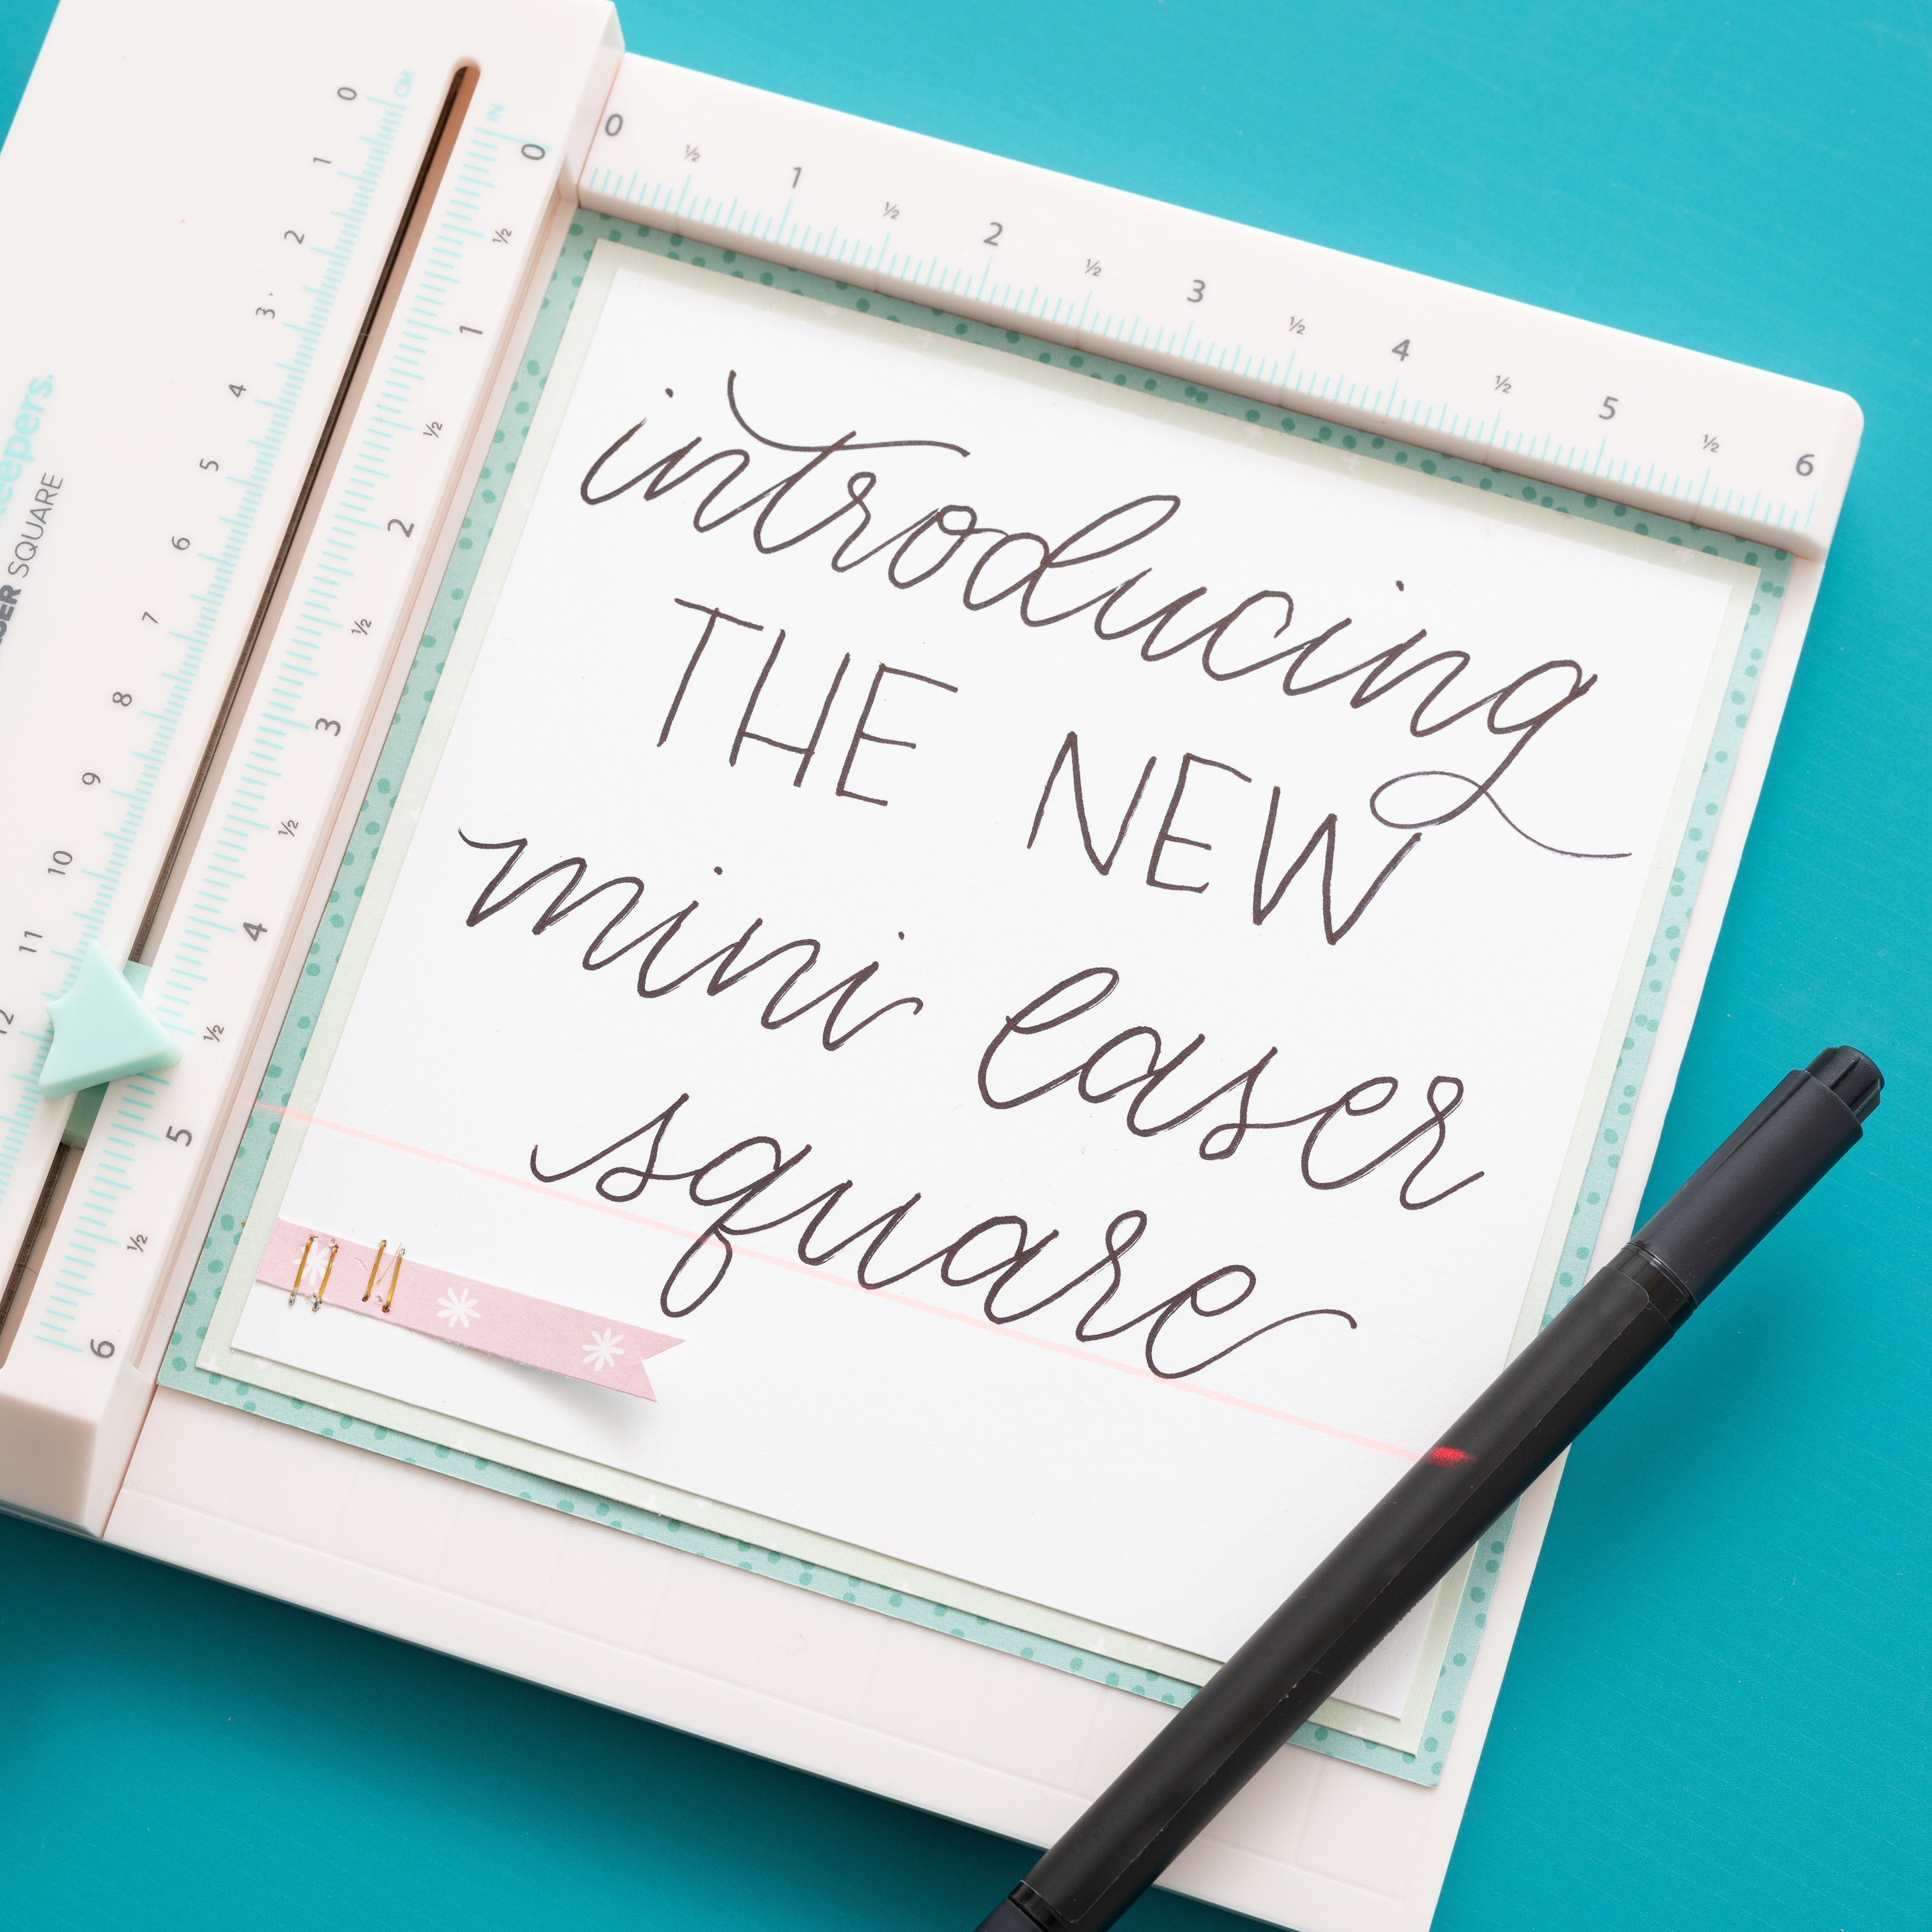 introducing
THE NEW
mini laser
square
keepers.
SQUARE
CM
0
1
2
3
4
5
6
7
8
9
10
11
12
IN
0
½
1
½
2
½
3
½
4
½
5
½
6
0
½
1
½
2
½
3
½
4
½
5
½
6